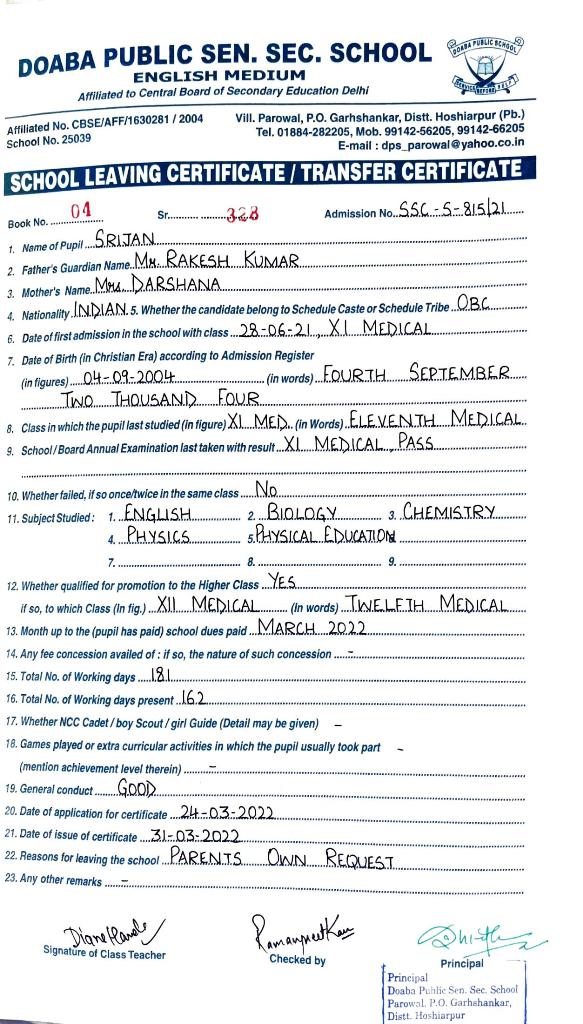 DOABA PUBLIC SEN. SEC. SCHOOL
ENGLISH MEDIUM
Affiliated to Central Board of Secondary Education Delhi
DOABA PUBLIC SCHOOL
SERVICE BEFORE SELF
Affiliated No. CBSE/AFF/1630281 / 2004
School No. 25039
Vill. Parowal, P.O. Garhshankar, Distt. Hoshiarpur (Pb.)
Tel. 01884-282205, Mob. 99142-56205, 99142-66205
E-mail : dps_parowal@yahoo.co.in
SCHOOL LEAVING CERTIFICATE / TRANSFER CERTIFICATE
Book No. 04 Sr. 328 Admission No. SSC-S-815/21
1. Name of Pupil SRIJAN
2. Father's Guardian Name Mr. RAKESH KUMAR
3. Mother's Name Mrs. DARSHANA
4. Nationality INDIAN 5. Whether the candidate belong to Schedule Caste or Schedule Tribe OBC
6. Date of first admission in the school with class 28-06-21, XI MEDICAL
7. Date of Birth (in Christian Era) according to Admission Register
(in figures) 04-09-2004 (in words) FOURTH SEPTEMBER
TWO THOUSAND FOUR
8. Class in which the pupil last studied (in figure) XI MED. (in Words) ELEVENTH MEDICAL
9. School / Board Annual Examination last taken with result XI MEDICAL, PASS
10. Whether failed, if so once/twice in the same class No
11. Subject Studied : 1. ENGLISH 2. BIOLOGY 3. CHEMISTRY
4. PHYSICS 5. PHYSICAL EDUCATION
7. 8. 9.
12. Whether qualified for promotion to the Higher Class YES
if so, to which Class (In fig.) XII MEDICAL (In words) TWELFTH MEDICAL
13. Month up to the (pupil has paid) school dues paid MARCH 2022
14. Any fee concession availed of : if so, the nature of such concession -
15. Total No. of Working days 181
16. Total No. of Working days present 162
17. Whether NCC Cadet / boy Scout / girl Guide (Detail may be given) -
18. Games played or extra curricular activities in which the pupil usually took part -
(mention achievement level therein) -
19. General conduct GOOD
20. Date of application for certificate 24-03-2022
21. Date of issue of certificate 31-03-2022
22. Reasons for leaving the school PARENTS OWN REQUEST
23. Any other remarks -
Ramanpreet Kaur
Signature of Class Teacher Checked by Principal
Principal
Doaba Public Sen. Sec. School
Parowal, P.O. Garhshankar,
Distt. Hoshiarpur